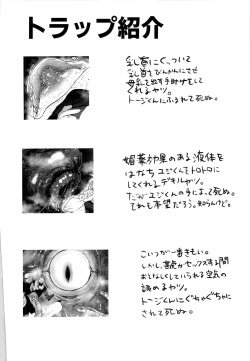 トラップ紹介
乳首にくっついて
乳首をびんびんにさせ
母乳を出す手助けをして
くれるヤツ。
トージくんにふまれて死ぬ。
媚薬効果のある液体を
はなち ユジくんをトロトロに
してくれるデキルヤツ。
だがユジくんの手によって死ぬ。
それも本望だろう。知らんけど。
こいつが一番きもい。
しかし、がセックスする間
おとなしくしていられる空気の
読めるヤツ。
トージくんにぐちゃぐちゃに
されて死ぬ。